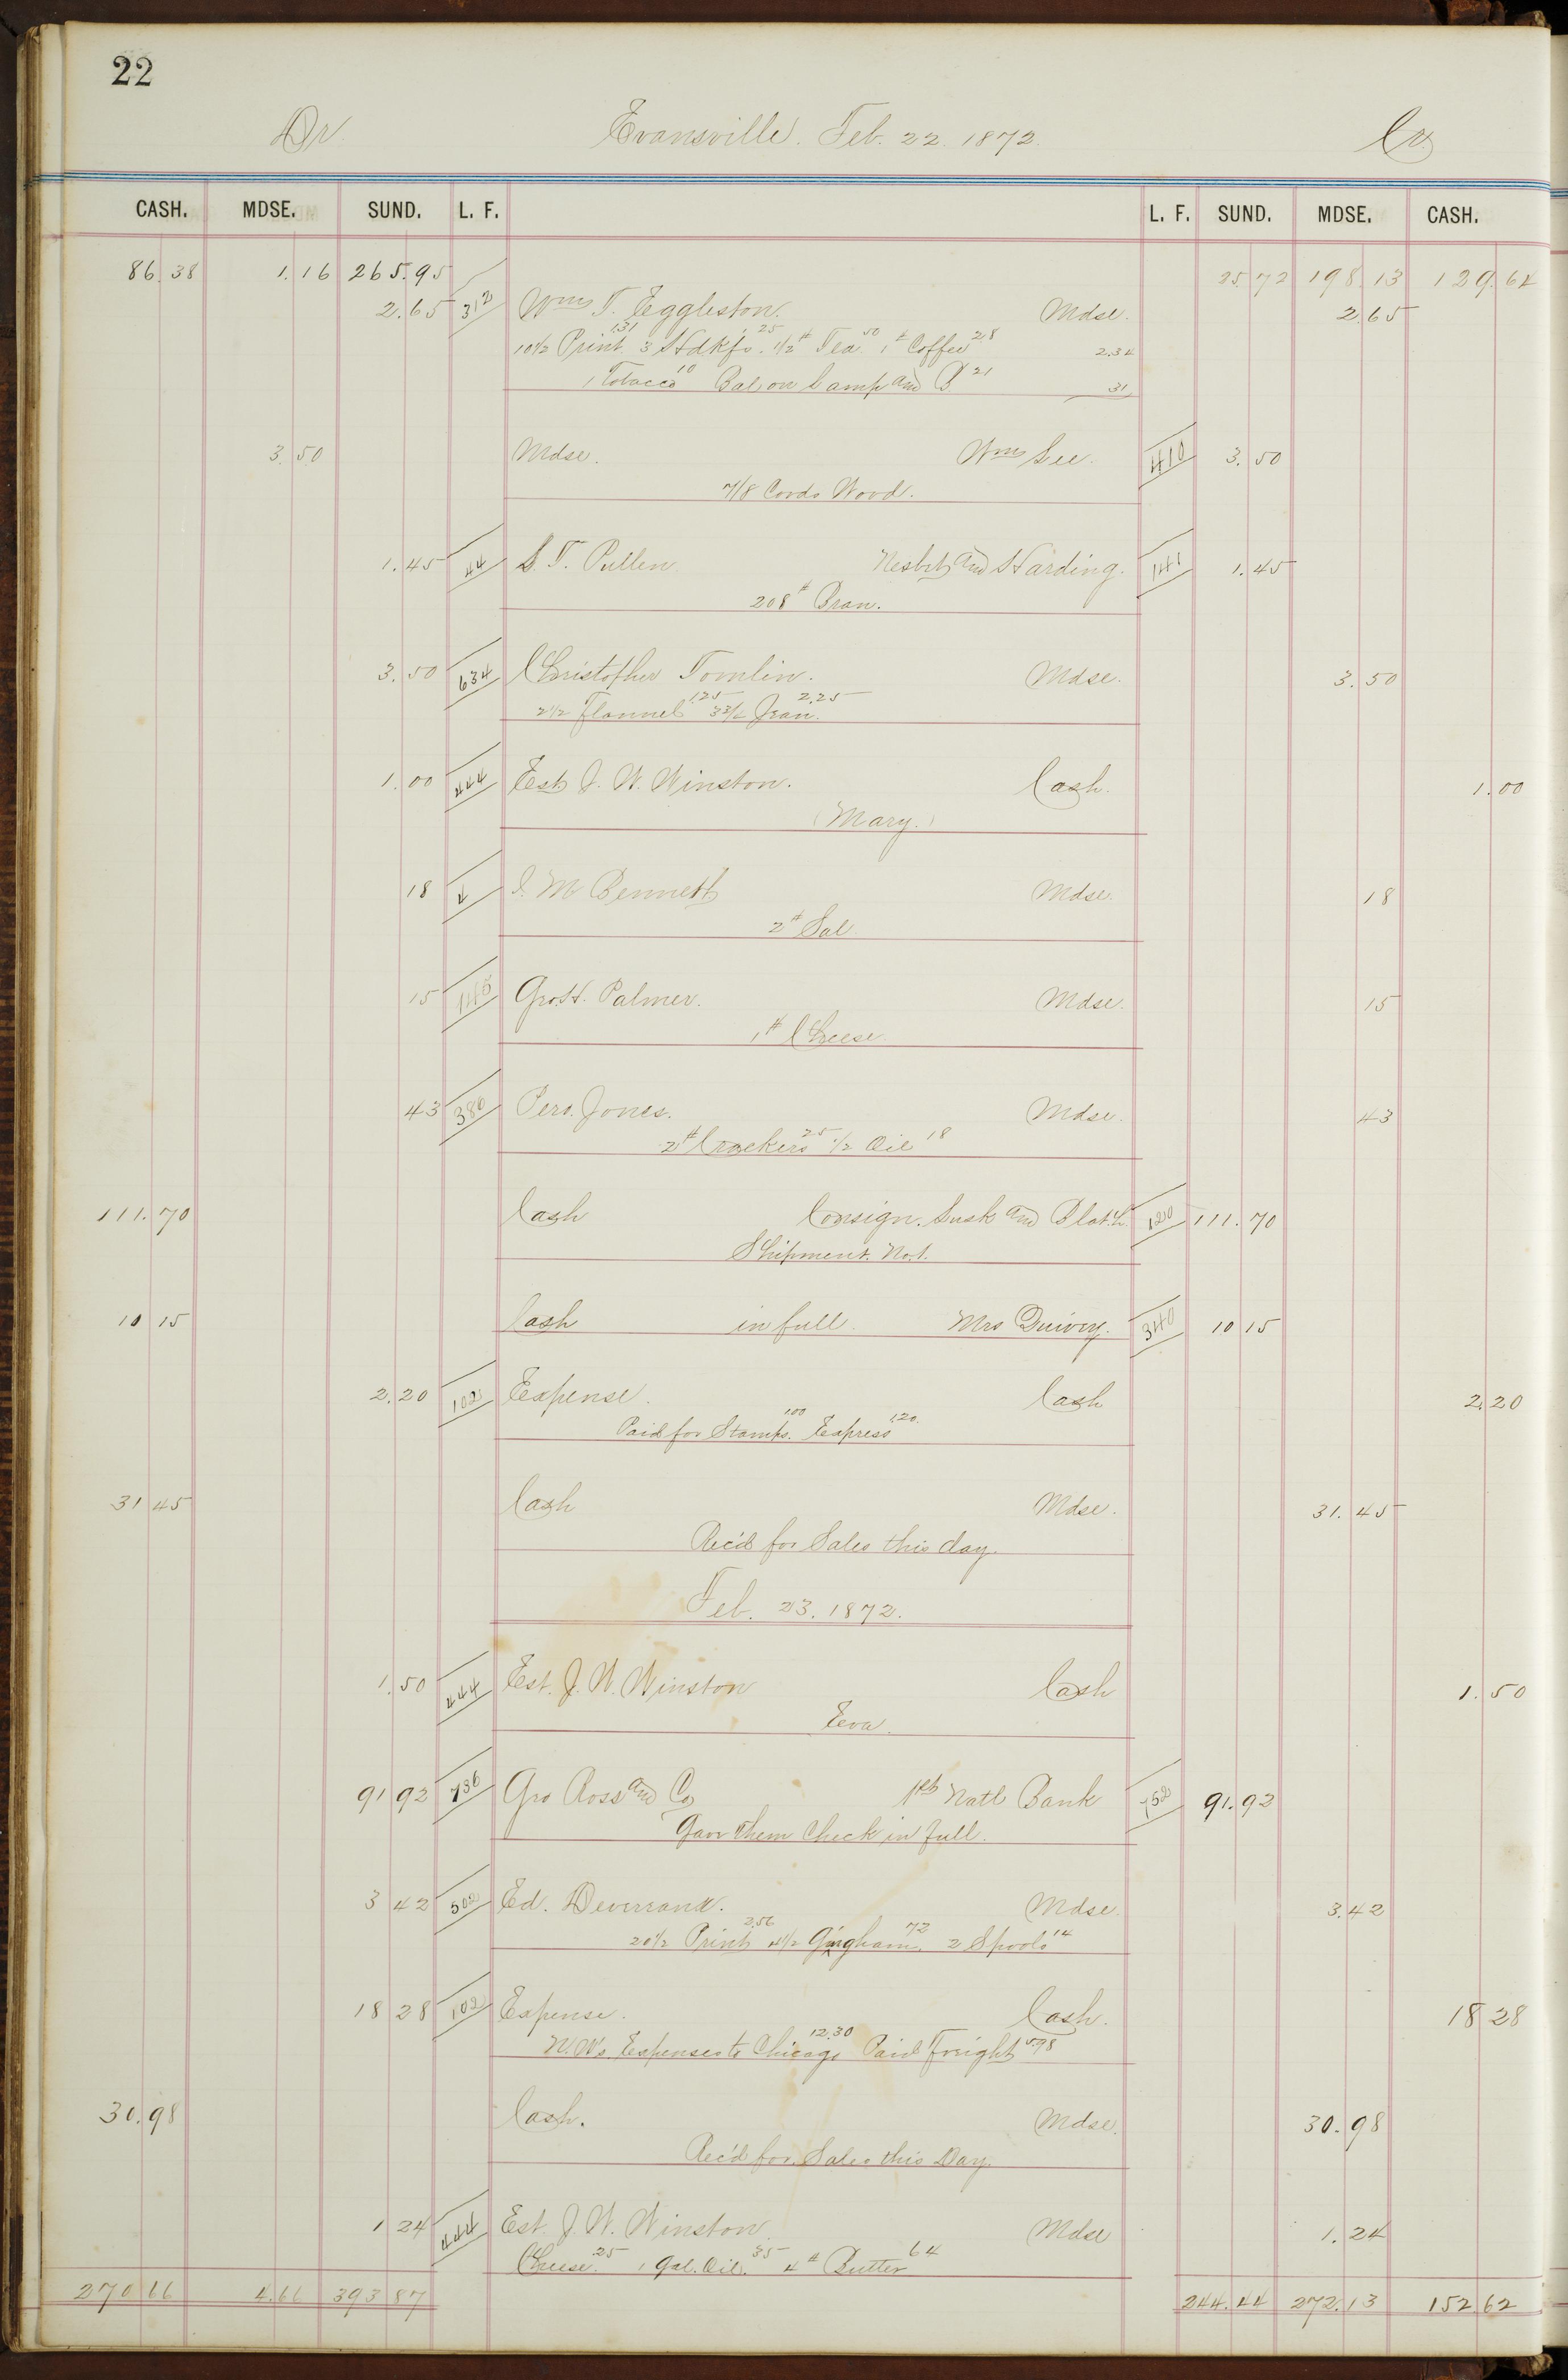 22
Dr. Evansville. Feb. 22. 1872. Cr.
CASH. MDSE. SUND. L. F. L. F. SUND. MDSE. CASH.
86.38 1.16 265.95 25.72 198.13 129.64
2.65 312 Wm T. Eggleston. Mdse. 2.65
10½ Print 1.31 3 Hdkfs. 25 ½# Tea 50 1# Coffee 28 2.34
1 Tobacco 10 Bal. on Lamp and B 21 31
3.50 Mdse. Wm See. 410 3.50
7/8 Cords Wood.
1.45 44 S. T. Pullen Nesbit and Harding. 141 1.45
208# Bran.
3.50 634 Christopher Tomlin. Mdse. 3.50
2½ Flannel 1.25 3¾ Jean. 2.25
1.00 444 Est J. W. Winston. Cash. 1.00
(Mary.)
18 4 J. M Bennett Mdse. 18
2# Sal
15 Palmer. Mdse. 15
1# Cheese.
43 380 Jones. Mdse. 43
2# Crackers 25 ½ Oil 18
111.70 Cash Consign. Lusk and 120 111.70
Shipment. No.1.
10 15 Cash in full. Mrs Quivey. 340 10 15
2.20 102 Expense. Cash 2.20
Paid for Stamps. 1.00 Express 1.20.
31 45 Cash Mdse. 31.45
Rec'd for Sales this day.
Feb. 23. 1872.
1.50 444 Est. J. W. Winston Cash 1.50
Eva.
91 92 736 Geo Ross and Co 1st Natl Bank 752 91.92
Gave Them Check in full.
3 42 502 Ed. Mdse. 3.42
20½ Print 2.56 4½ Gingham. 72 2 Spools 14
18 28 102 Expense. Cash. 18 28
Expenses to Chicago 12.30 Paid Freight 5.98
30.98 Cash. Mdse. 30.98
Rec'd for Sales this Day.
1 24 444 Est. J. W. Winston Mdse 1.24
Cheese. 25 1 Gal. Oil. 35 4# Butter 64
270 66 4.66 393 87 244.44 272.13 152 62